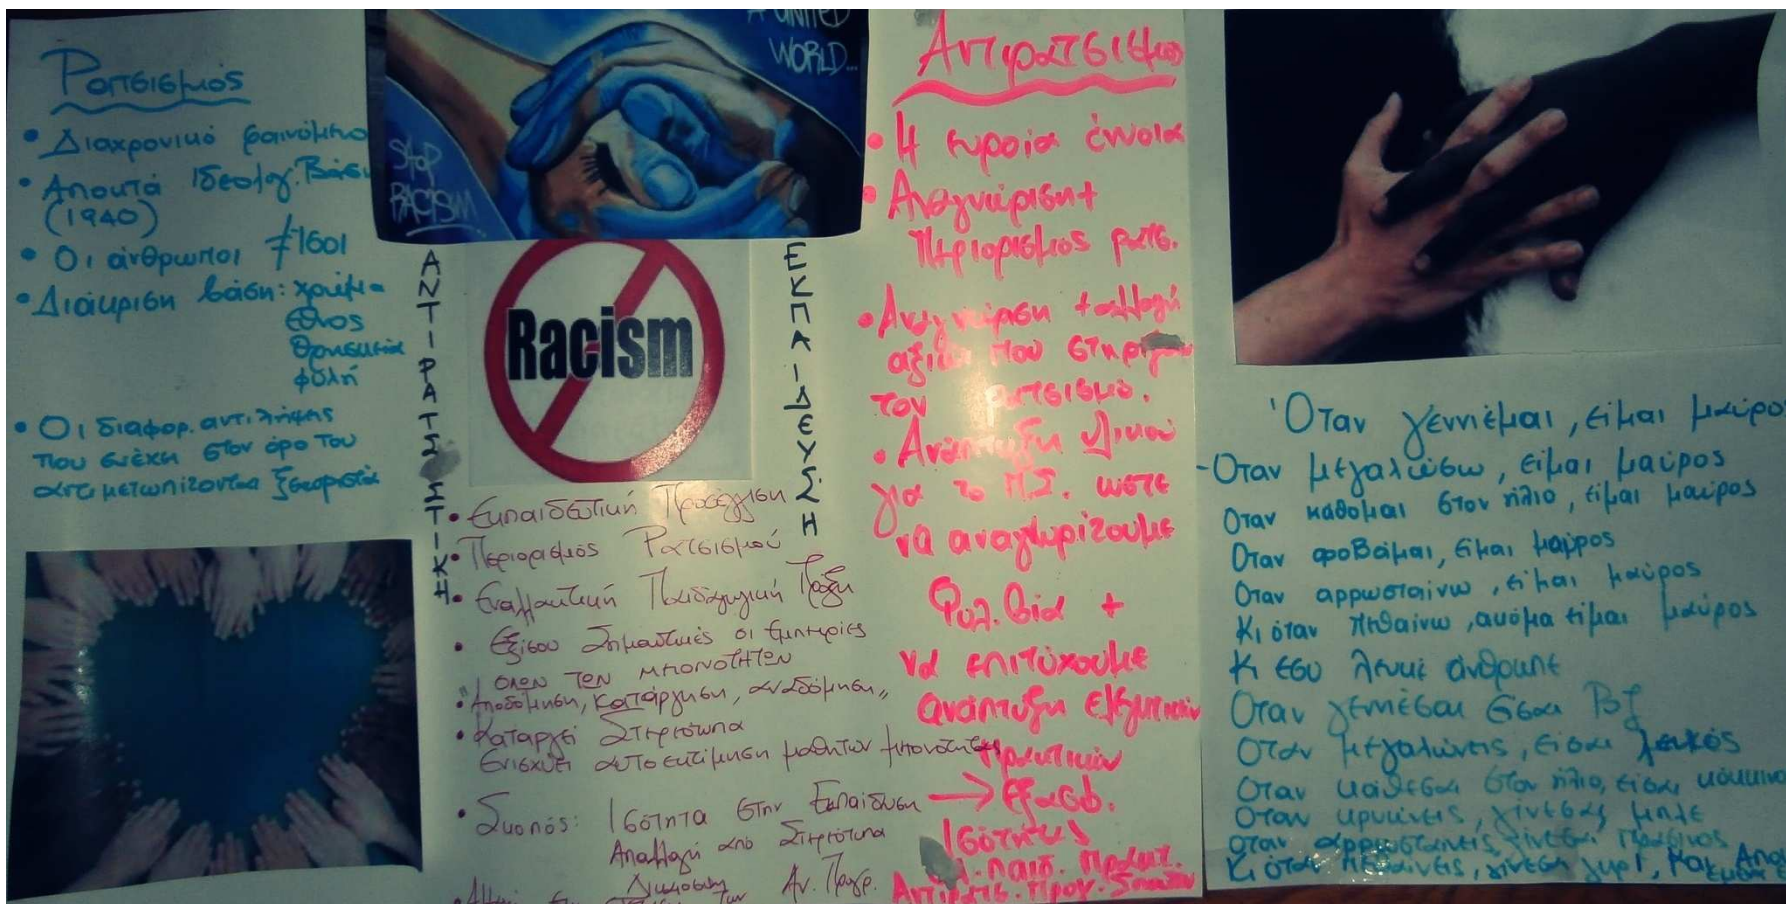 Ρατσισμός
• Διαχρονικό φαινόμενο
• Αποκτά Ιδεολογ. Βάση
(1940)
• Οι άνθρωποι ≠ Ίσοι
• Διάκριση βάση: χρώμα
έθνος
θρησκεία
φυλή
• Οι διαφορ. αντιλήψεις
που ενέχει στον όρο του
αντιμετωπίζονται ξεχωριστά
A UNITED
WORLD...
STOP
RACISM
ΑΝΤΙΡΑΤΣΙΣΤΙΚΗ
Racism
ΕΚΠΑΙΔΕΥΣΗ
• Εκπαιδευτική Προσέγγιση
• Περιορισμός Ρατσισμού
• Εναλλακτική Παιδαγωγική Πράξη
• Εξίσου Σημαντικές οι Εμπειρίες
όλων των μπονοτήτων
• "Αποδόμηση, κατάργηση, αναδόμηση"
• Καταργεί Στερεότυπα
Ενισχύει αυτοεκτίμηση μαθητών μειονότητας
• Σκοπός: Ισότητα στην Εκπαίδευση
Απαλλαγή από Στερεότυπα
Αν. Προγρ.
Αντιρατσισμός
• Η ευρεία έννοια
• Αναγνώριση +
περιορισμός ρατσ.
• Αναγνώριση + αλλαγή
αξιών που στηρίζουν
τον ρατσισμό.
• Ανάπτυξη υλικού
για το Π.Σ. ώστε
να αναγνωρίζουμε
Φυλ. βία +
να επιτύχουμε
ανάπτυξη
πρακτικών
→ εξασφ.
Ισότητας
Παιδ. Πρακτ.
Αντιρατσ. Προγ. Σπουδών
Όταν γεννιέμαι, είμαι μαύρο
-Όταν μεγαλώσω, είμαι μαύρος
Όταν κάθομαι στον ήλιο, είμαι μαύρος
Όταν φοβάμαι, είμαι μαύρος
Όταν αρρωσταίνω, είμαι μαύρος
Κι όταν πεθαίνω, ακόμα είμαι μαύρος
Κι εσύ λευκέ άνθρωπε
Όταν γεννιέσαι είσαι ροζ
Όταν μεγαλώνεις, είσαι λευκός
Όταν κάθεσαι στον ήλιο, είσαι κόκκινο
Όταν κρυώνεις, γίνεσαι μπλε
Όταν αρρωσταίνεις, γίνεσαι πράσινος
Κι όταν πεθαίνεις, γίνεσαι γκρί, Και